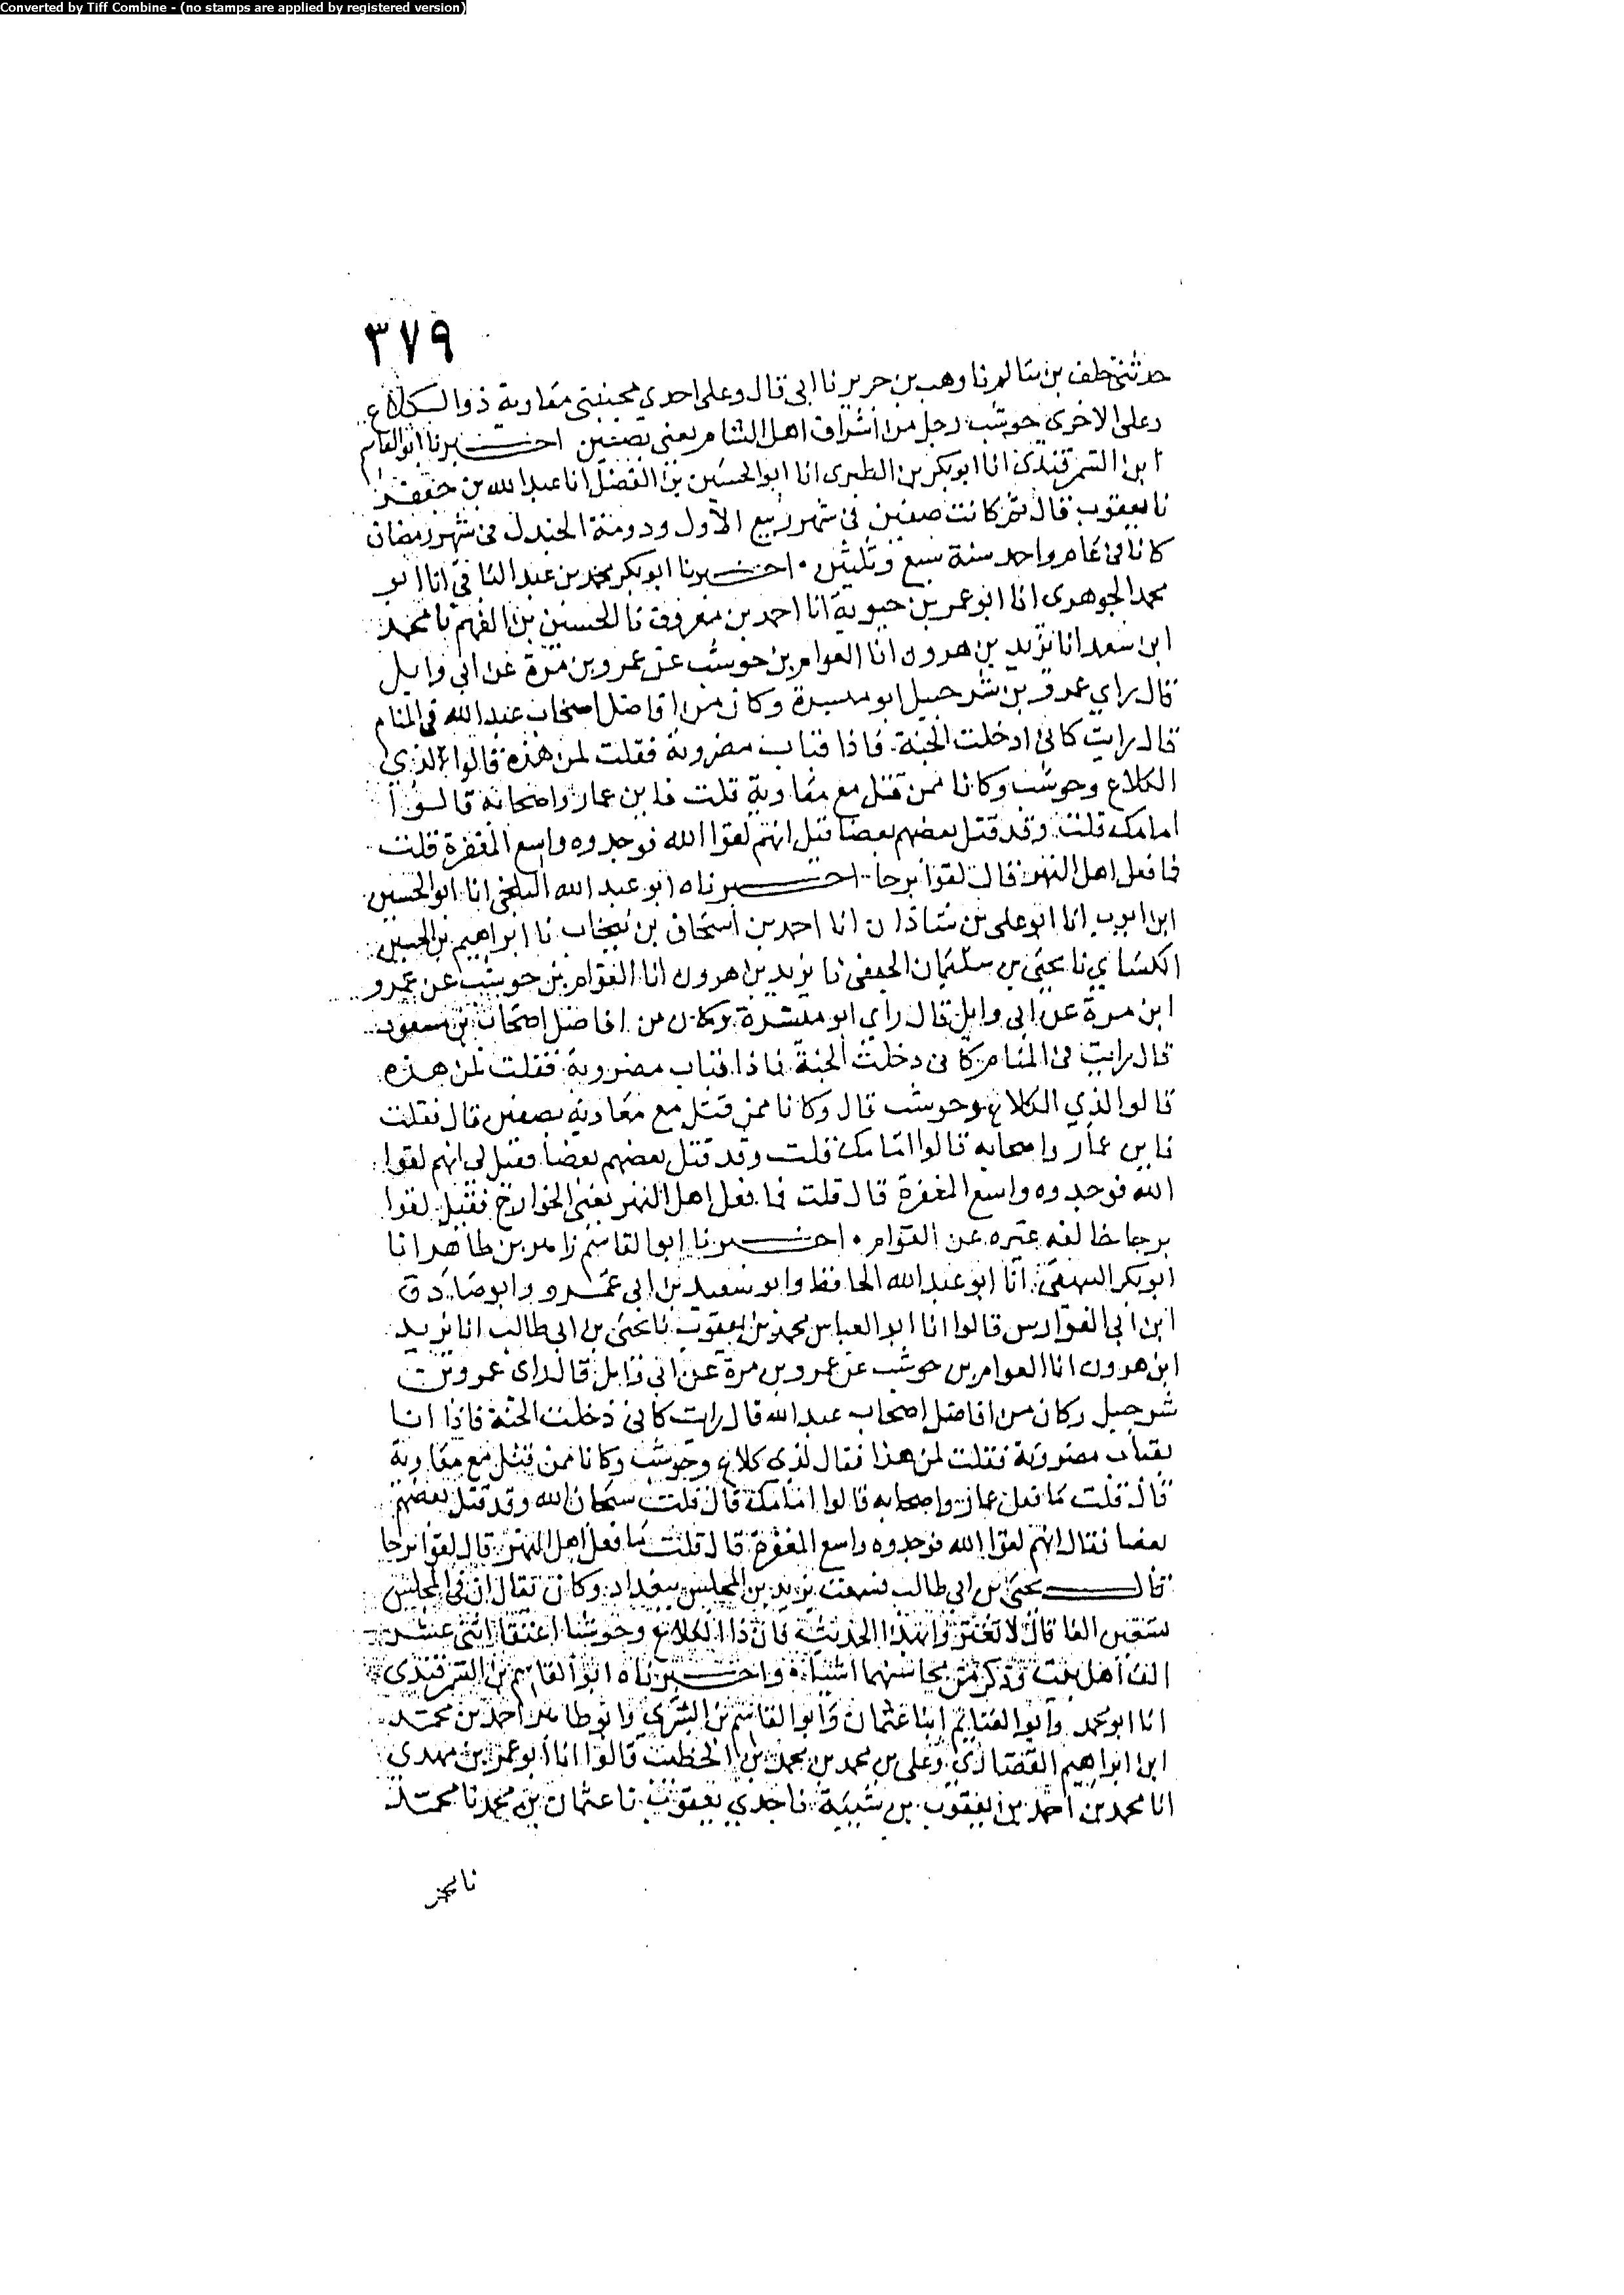 Converted by Tiff Combine - (no stamps are applied by registered version)
٣٧٩
حدثني خلف بن سالم نا وهب بن جرير نا ابي قال وعلى احدى مجنبتي معاوية ذو الكلاع
وعلى الاخرى حوشب رجل من اشراف اهل الشام يعني بصفين اخبرنا ابو القاسم
ابن السمرقندي انا ابو بكر بن الطبري انا ابو الحسين بن الفضل انا عبد الله بن جعفر
نا يعقوب قال ثم كانت صفين في شهر ربيع الاول ودومة الجندل في شهر رمضان
كانا في عام واحد سنة سبع وثلثين اخبرنا ابو بكر محمد بن عبد الباقي انا ابو
محمد الجوهري انا ابو عمر بن حيوية انا احمد بن معروف نا الحسين بن الفهم نا محمد
ابن سعد انا يزيد بن هرون انا العوام بن حوشب عن عمرو بن مرة عن ابي وايل
قال راي عمرو بن شرحبيل ابو ميسرة وكان من افاضل اصحاب عبد الله في المنام
قال رايت كاني ادخلت الجنة فاذا قباب مضروبة فقلت لمن هذه قالوا لذي
الكلاع وحوشب وكانا ممن قتل مع معاوية قلت فاين عمار واصحابه قالوا
امامك قلت وقد قتل بعضهم بعضا قيل انهم لقوا الله فوجدوه واسع المغفرة قلت
فما فعل اهل النهر قال لقوا برحا اخبرناه ابو عبد الله البلخي انا ابو الحسين
ابن ايوب انا ابو علي بن شاذان انا احمد بن اسحاق بن نيخاب نا ابراهيم بن الحسين
الكساي نا يحيى بن سليمان الجعفي نا يزيد بن هرون انا العوام بن حوشب عن عمرو
ابن مرة عن ابي وايل قال راي ابو ميسرة وكان من افاضل اصحاب بن مسعود
قال رايت في المنام كاني دخلت الجنة فاذا قباب مضروبة فقلت لمن هذه
قالوا لذي الكلاع وحوشب قال وكانا ممن قتل مع معاوية بصفين قال فقلت
فاين عمار واصحابه قالوا امامك قلت وقد قتل بعضهم بعضا فقيل لي انهم لقوا
الله فوجدوه واسع المغفرة قال قلت فما فعل اهل النهر يعني الخوارج فقيل لقوا
برحا خالفه غيره عن العوام اخبرنا ابو القاسم زاهر بن طاهر انا
ابو بكر البيهقي انا ابو عبد الله الحافظ وابو سعيد بن ابي عمرو وابو صادق
ابن ابي الفوارس قالوا انا ابو العباس محمد بن يعقوب نا يحيى بن ابي طالب انا يزيد
ابن هرون انا العوام بن حوشب عن عمرو بن مرة عن ابي وايل قال راى عمرو بن
شرحبيل وكان من افاضل اصحاب عبد الله قال رايت كاني دخلت الجنة فاذا انا
بقباب مضروبة فقلت لمن هذا فقال لذي كلاع وحوشب وكانا ممن قتل مع معاوية
قال قلت ما فعل عمار واصحابه قالوا امامك قال قلت سبحان الله وقد قتل بعضهم
بعضا فقال انهم لقوا الله فوجدوه واسع المغفرة قال قلت ما فعل اهل النهر قال لقوا برحا
قال يحيى بن ابي طالب فسمعت يزيد بن المجلس ببغداد وكان يقال ان في المجلس
سبعين الفا قال لا تغتروا بهذا الحديث فان ذا الكلاع وحوشبا اعتقا اثنى عشر
الف اهل بيت وذكر من محاسنهما اشياء واخبرناه ابو القاسم بن السمرقندي
انا ابو محمد وابو الغنايم ابنا عثمان وابو القاسم بن البسري وابو طاهر احمد بن محمد
ابن ابراهيم القصاري وعلي بن محمد بن محمد بن الخطيب قالوا انا ابو عمر بن مهدي
انا محمد بن احمد بن يعقوب بن شيبة نا جدي يعقوب نا عثمان بن محمد نا محمد